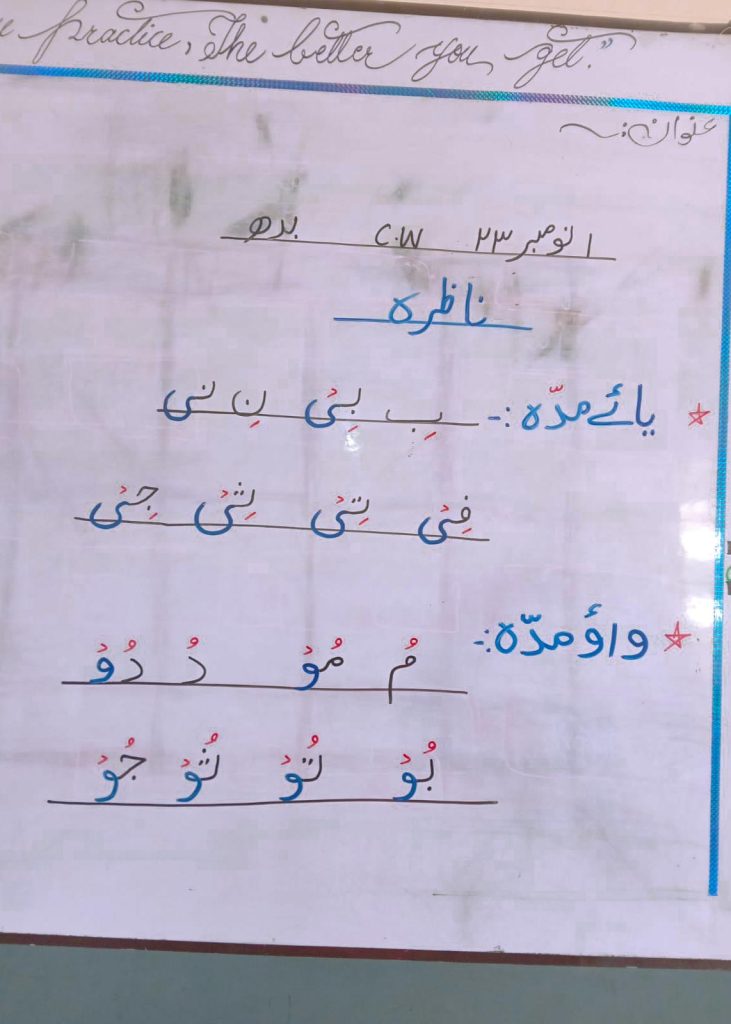 practice, The better you get."
عنوان:~
۱ نومبر ۲۳ C.W بدھ
ناظرہ
یائے مدّہ :- بِ بِیْ نِ نیِ
فِیْ تِیْ ثِیْ جِیْ
واؤ مدّہ :-
مُ مُوْ دُ دُوْ
بُوْ تُوْ ثُوْ جُوْ